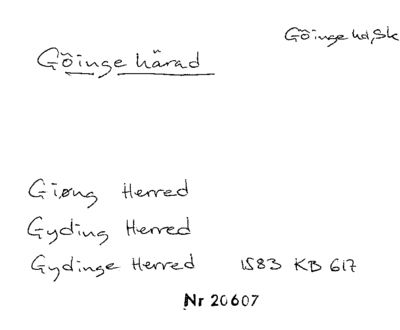 Göinge hd, Sk
Göinge härad
Giøng Herred
Gyding Herred
Gydinge Herred 1583 KB 617
Nr 20607